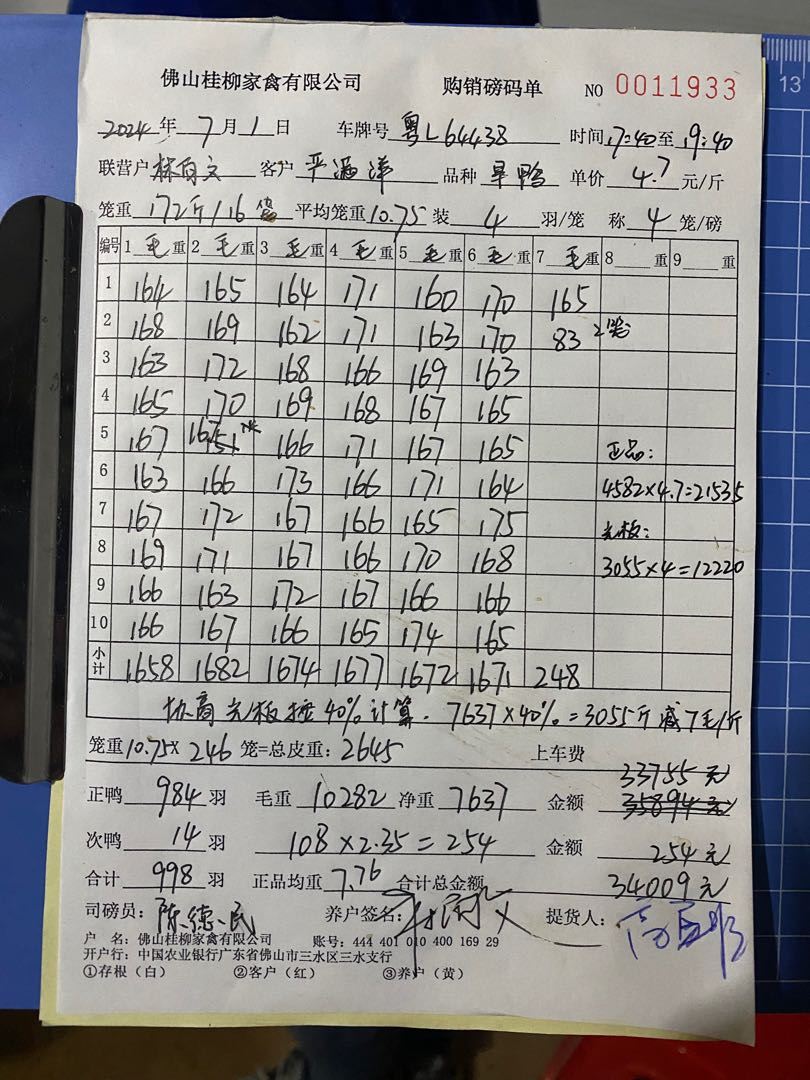 佛山桂柳家禽有限公司 购销磅码单 NO 0011933
2024年 7月 1日 车牌号 粤L64438 时间 17:40至 19:40
联营户 林有文 客户 品种 旱鸭 单价 4.7 元/斤
笼重 172斤/16笼 平均笼重 10.75 装 4 羽/笼 称 4 笼/磅
编号 1 毛 重 2 毛 重 3 毛 重 4 毛 重 5 毛 重 6 毛 重 7 毛 重 8 重 9 重
1 164 165 164 171 160 170 165
2 168 169 162 171 163 170 83 2笼
3 163 172 168 166 169 163
4 165 170 169 168 167 165
5 167 167 166 171 167 165 正品:
6 163 166 173 166 171 164 4582×4.7=21535
7 167 172 167 166 165 175 光板:
8 169 171 167 166 170 168 3055×4=12220
9 166 163 172 167 166 166
10 166 167 166 165 174 165
小计 1658 1682 1674 1677 1672 1671 248
协商光板按40%计算. 7637×40%=3055斤 减7毛/斤
笼重 10.75× 246 笼=总皮重: 2645 上车费
33755元
正鸭 984 羽 毛重 10282 净重 7637 金额 35894元
次鸭 14 羽 108×2.35=254 金额 254元
合计 998 羽 正品均重 7.76 合计总金额 34009元
司磅员: 陈德民 养户签名: 提货人:
户 名: 佛山桂柳家禽有限公司 账号: 444 401 010 400 169 29
开户行: 中国农业银行广东省佛山市三水区三水支行
①存根（白） ②客户（红） ③养户（黄）
13